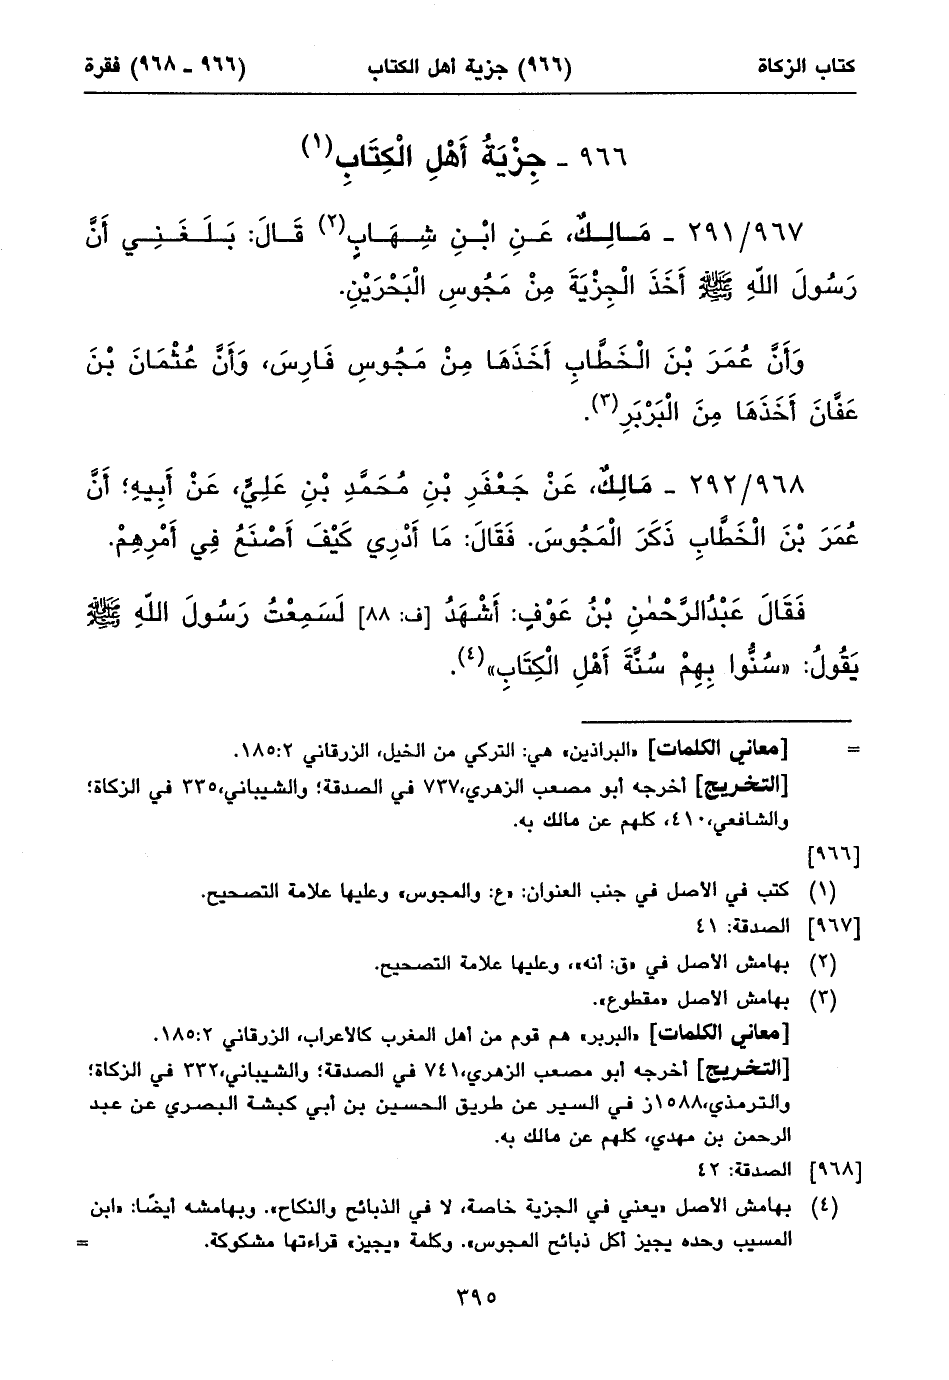 كتاب الزكاة (٩٦٦) جزية أهل الكتاب (٩٦٦ ـ ٩٦٨) فقرة
٩٦٦ ـ جِزْيَةُ أَهْلِ الْكِتَابِ(١)
٢٩١/٩٦٧ ـ مَالِكٌ، عَنِ ابْنِ شِهَابٍ(٢) قَالَ: بَلَغَنِي أَنَّ
رَسُولَ اللّهِ ﷺ أَخَذَ الْجِزْيَةَ مِنْ مَجُوسِ الْبَحْرَيْنِ.
وَأَنَّ عُمَرَ بْنَ الْخَطَّابِ أَخَذَهَا مِنْ مَجُوسِ فَارِسَ، وَأَنَّ عُثْمَانَ بْنَ
عَفَّانَ أَخَذَهَا مِنَ الْبَرْبَرِ(٣).
٢٩٢/٩٦٨ ـ مَالِكٌ، عَنْ جَعْفَرِ بْنِ مُحَمَّدِ بْنِ عَلِيٍّ، عَنْ أَبِيهِ؛ أَنَّ
عُمَرَ بْنَ الْخَطَّابِ ذَكَرَ الْمَجُوسَ. فَقَالَ: مَا أَدْرِي كَيْفَ أَصْنَعُ فِي أَمْرِهِمْ.
فَقَالَ عَبْدُالرَّحْمٰنِ بْنُ عَوْفٍ: أَشْهَدُ [ف: ٨٨] لَسَمِعْتُ رَسُولَ اللّهِ ﷺ
يَقُولُ: «سُنُّوا بِهِمْ سُنَّةَ أَهْلِ الْكِتَابِ»(٤).
= [معاني الكلمات] «البراذين» هي: التركي من الخيل، الزرقاني ١٨٥:٢.
[التخريج] أخرجه أبو مصعب الزهري،٧٣٧ في الصدقة؛ والشيباني،٣٣٥ في الزكاة؛
والشافعي،٤١٠، كلهم عن مالك به.
[٩٦٦]
(١) كتب في الأصل في جنب العنوان: «ع: والمجوس» وعليها علامة التصحيح.
[٩٦٧] الصدقة: ٤١
(٢) بهامش الأصل في «ق: أنه»، وعليها علامة التصحيح.
(٣) بهامش الأصل «مقطوع».
[معاني الكلمات] «البربر» هم قوم من أهل المغرب كالأعراب، الزرقاني ١٨٥:٢.
[التخريج] أخرجه أبو مصعب الزهري،٧٤١ في الصدقة؛ والشيباني،٣٣٢ في الزكاة؛
والترمذي،١٥٨٨ز في السير عن طريق الحسين بن أبي كبشة البصري عن عبد
الرحمن بن مهدي، كلهم عن مالك به.
[٩٦٨] الصدقة: ٤٢
(٤) بهامش الأصل «يعني في الجزية خاصة، لا في الذبائح والنكاح». وبهامشه أيضًا: «ابن
المسيب وحده يجيز أكل ذبائح المجوس». وكلمة «يجيز» قراءتها مشكوكة. =
٣٩٥